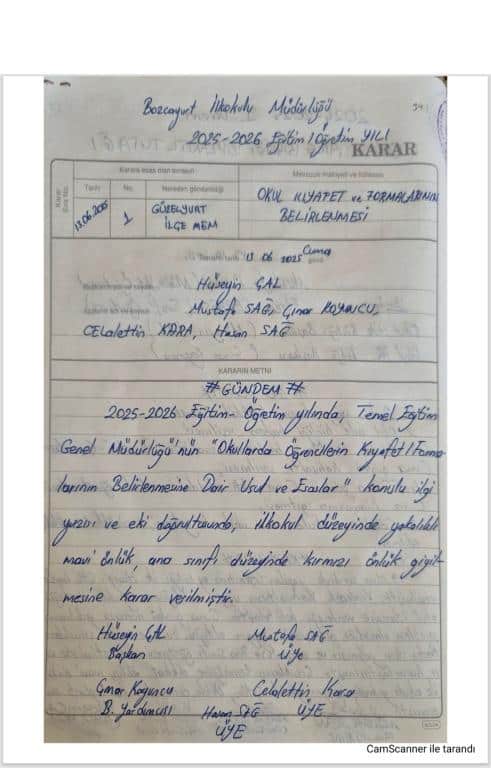 Bozcayurt İlkokulu Müdürlüğü
2025-2026 Eğitim/Öğretim YILI
KARAR
Karara esas olan evrakın
Mevzuun mahiyeti ve hülasası
Karar
Sıra No.
Tarih
No.
Nereden gönderildiği
13.06.2025
1
GÜZELYURT
İLÇE MEM
OKUL KIYAFET ve FORMALARININ
BELİRLENMESİ
13 06 2025 Cuma
Hüseyin ÇAL
Mustafa SAĞ, Çınar KOYUNCU,
CElalettin KARA, Hasan SAĞ
KARARIN METNİ
# GÜNDEM #
2025-2026 Eğitim-Öğretim yılında; Temel Eğitim
Genel Müdürlüğü'nün "Okullarda Öğrencilerin Kıyafet/Forma-
larının Belirlenmesine Dair Usul ve Esaslar" konulu ilgi
yazısı ve eki doğrultusunda; ilkokul düzeyinde yakalıklı
mavi önlük, ana sınıfı düzeyinde kırmızı önlük giyil-
mesine karar verilmiştir.
Hüseyin ÇAL Mustafa SAĞ
Başkan ÜYE
Çınar Koyuncu Celalettin Kara
B. Yardımcısı Hasan SAĞ ÜYE
ÜYE
CamScanner ile tarandı